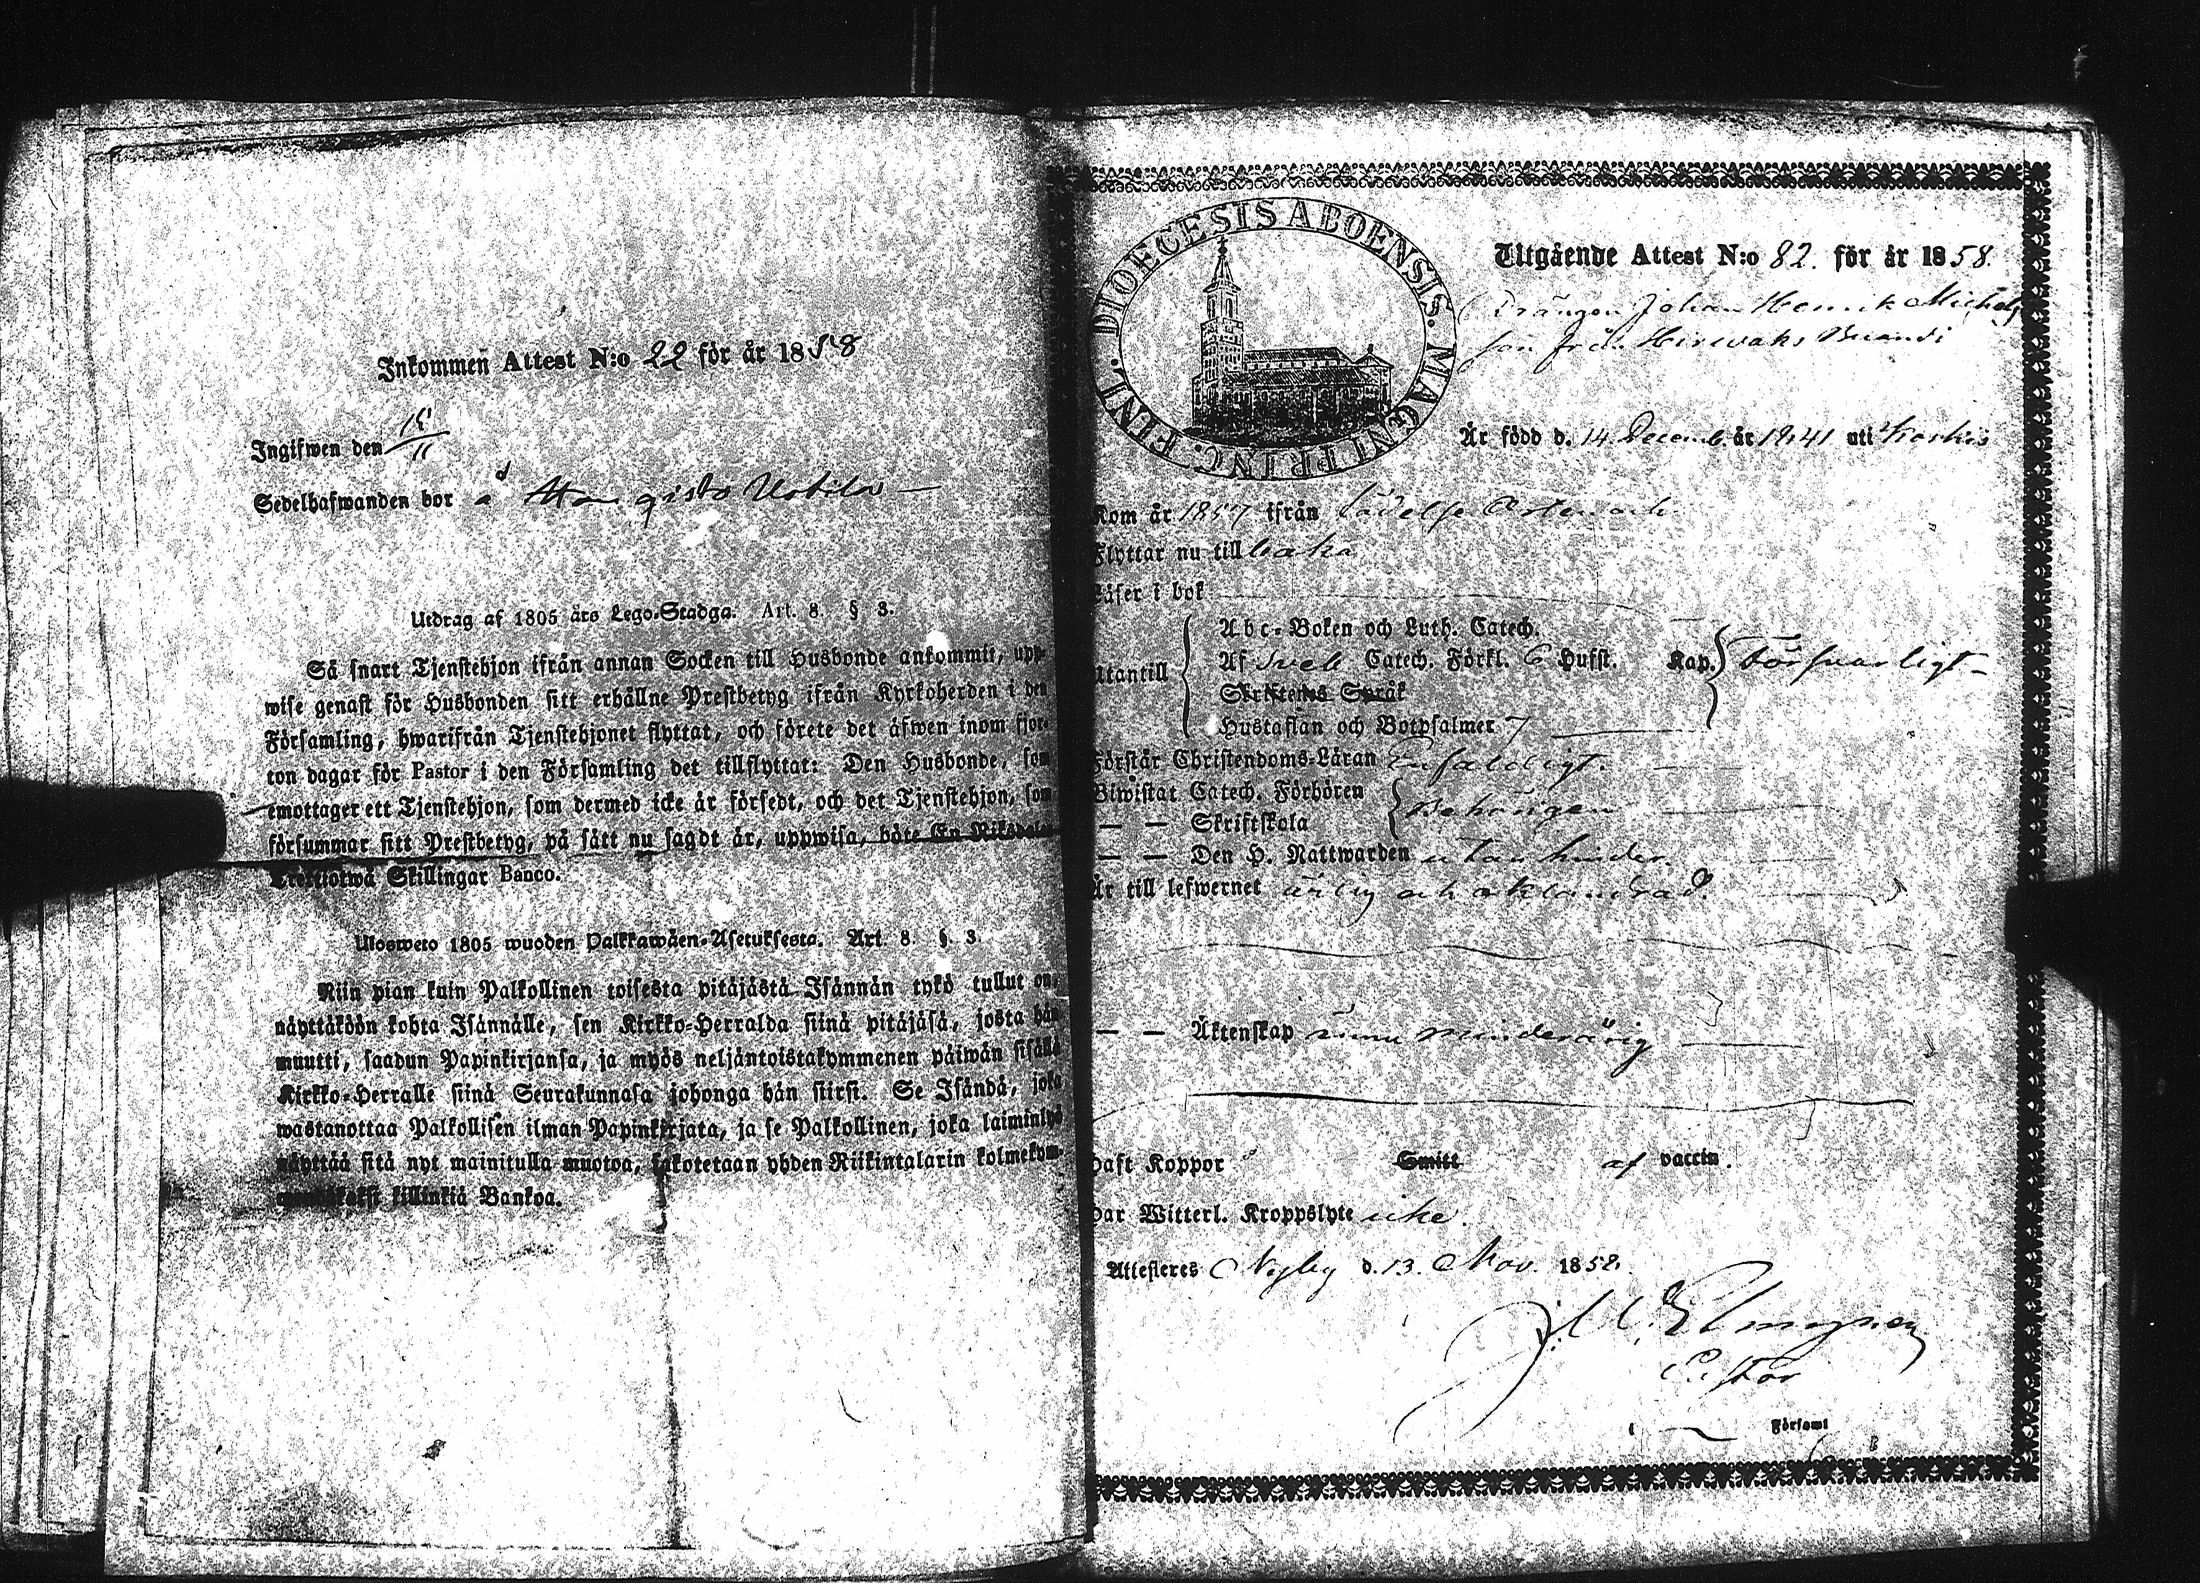 Inkommen Attest N:o 22 för år 1858
Ingifwen den 15/11
Sedelhafwanden bor å
Utdrag af 1805 års Lego-Stadga. Art. 8. § 3.
Så snart Tjenstehjon ifrån annan Socken till Husbonde ankommit, upp-
wise genast för Husbonden sitt erhållne Prestbetyg ifrån Kyrkoherden i den
Församling, hwarifrån Tjenstehjonet flyttat, och förete det äfwen inom fjor-
ton dagar för Pastor i den Församling det tillflyttat: Den Husbonde, som
emottager ett Tjenstehjon, som dermed icke är försedt, och det Tjenstehjon, som
försummar sitt Prestbetyg, på sätt nu sagdt är, uppwisa, böte En Riksdaler
Trettiotwå Skillingar Banco.
Ulosweto 1805 wuoden Palkkawäen-Asetuksesta. Art. 8. §. 3.
Niin pian kuin Palkollinen toisesta pitäjästä Isännän tykö tullut on,
näyttäköön kohta Isännälle, sen Kirkko-Herralda siinä pitäjäsä, josta hän
muutti, saadun Papinkirjansa, ja myös neljäntoistakymmenen päiwän sisällä
Kirkko-Herralle siinä Seurakunnasa johonga hän siirsi. Se Isändä, joka
wastanottaa Palkollisen ilman Papinkirjata, ja se Palkollinen, joka laiminlyö
näyttää sitä nyt mainitulla muotoa, sakotetaan yhden Riikintalarin kolmekym-
killinkiä Bankoa.
DIOECESIS ABOENSIS. MAGNI PRINC. FINL.
Utgående Attest N:o 82. för år 1858.
Drängen Johan Henrik Michels
son från Hirvaks
Är född d. 14 Decemb. år 1841 uti Koskis
Kom år 1857 ifrån
Flyttar nu tillbaka
Läser i bok
Abc-Boken och Luth. Catech.
Utantill Af Sveb Catech. Förkl. 6 Hufst. Kap. Försvarligt
Skriftenes Språk
Hustaflan och Botpsalmer 7
Förstår Christendoms-Läran Enfaldigt.
Biwistat Catech. Förhören
— — Skriftskola Behörigen
— — Den H. Nattwarden utan hinder.
Är till lefwernet ärlig och oklandrad.
— — Äktenskap ännu minderårig
Haft Koppor Smitt af vaccin.
Har Witterl. Kroppslyte icke.
Attesteres Nyby d. 13. Nov. 1858.
Pastor
Församl